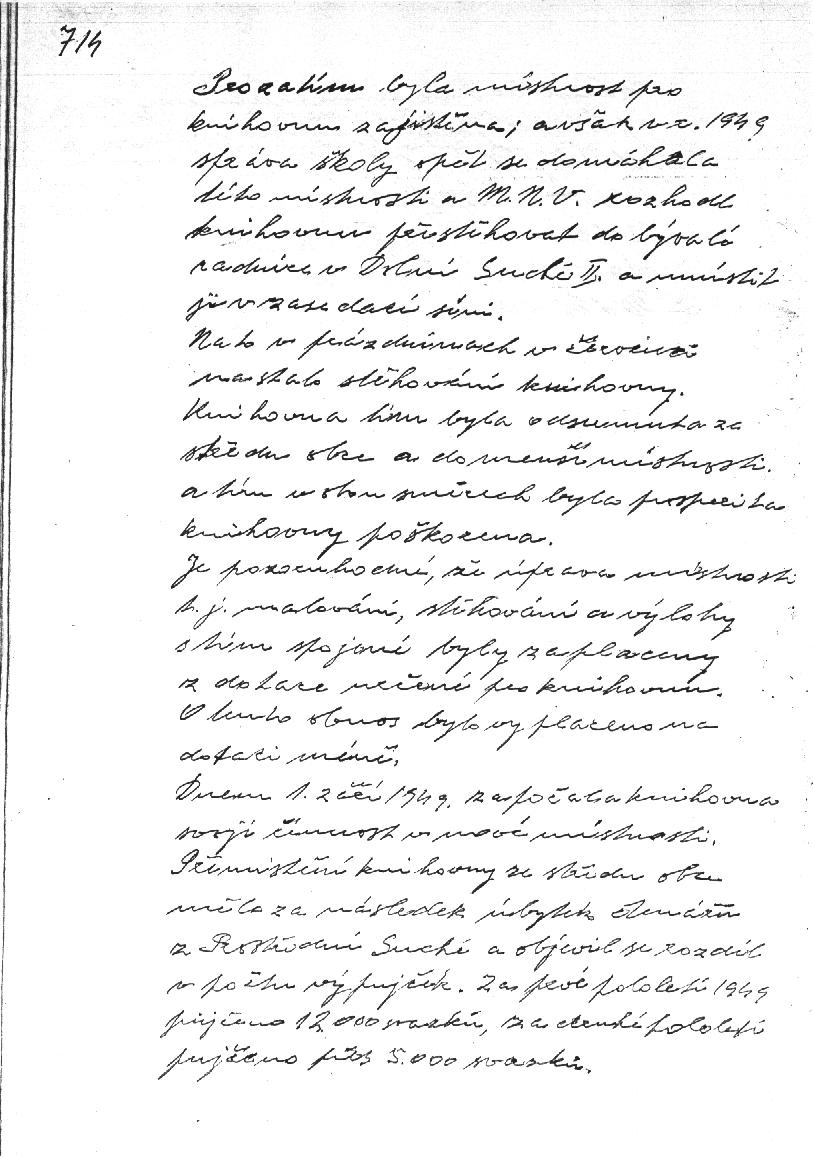 7/4
Prozatím byla místnost pro
knihovnu zajištěna; avšak v r. 1949
správa školy opět se domáhala
této místnosti a M.N.V. rozhodl
knihovnu přestěhovat do bývalé
radnice v Dolní Suché II. a umístit
ji v zasedací síni.
Nato v prázdninách v červenci
nastalo stěhování knihovny.
Knihovna tím byla odsunuta ze
středu obce a do menší místnosti.
a tím v obou směrech byla prosperita
knihovny poškozena.
Je pozoruhodné, že úprava místnosti
t.j. malování, stěhování a výlohy
s tím spojené byly zaplaceny
z dotace určené pro knihovnu.
O tento obnos bylo vyplaceno na
dotaci méně.
Dnem 1. září 1949, započala knihovna
svoji činnost v nové místnosti.
Přemístění knihovny ze středu obce
mělo za následek úbytek čtenářů
z Prostřední Suché a objevil se rozdíl
v počtu výpujček. Za prvé pololetí 1949
pujčeno 12 000 svazků, za druhé pololetí
pujčeno přes 5.000 svazků.